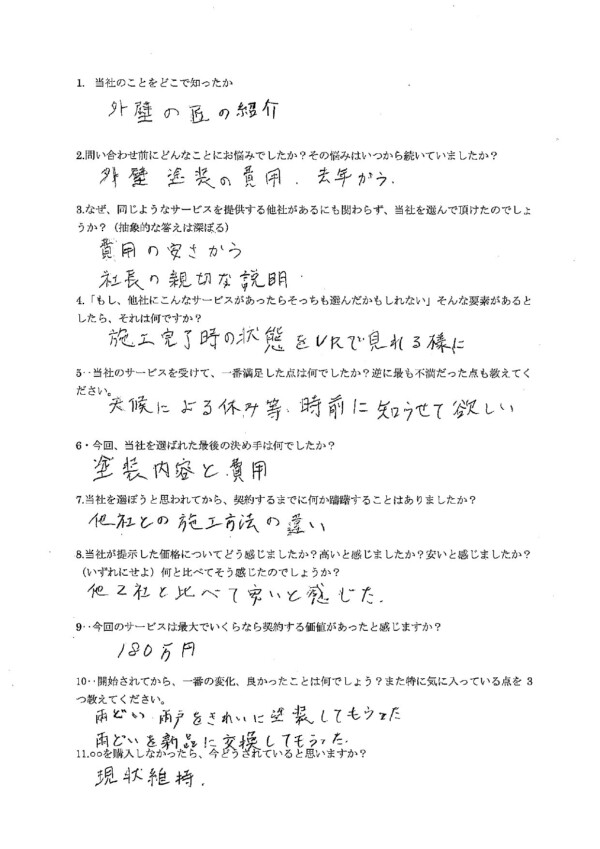 1. 当社のことをどこで知ったか
外壁の匠の紹介
2.問い合わせ前にどんなことにお悩みでしたか？その悩みはいつから続いていましたか？
外壁塗装の費用．去年から．
3.なぜ、同じようなサービスを提供する他社があるにも関わらず、当社を選んで頂けたのでしょ
うか？（抽象的な答えは深ぼる）
費用の安さから
社長の親切な説明
4.「もし、他社にこんなサービスがあったらそっちも選んだかもしれない」そんな要素があると
したら、それは何ですか？
施工完了時の状態をVRで見れる様に
5‥当社のサービスを受けて、一番満足した点は何でしたか？逆に最も不満だった点も教えてく
ださい。
天候による休み等、時前に知らせて欲しい
6・今回、当社を選ばれた最後の決め手は何でしたか？
塗装内容と費用
7.当社を選ぼうと思われてから、契約するまでに何か躊躇することはありましたか？
他社との施工方法の違い
8.当社が提示した価格についてどう感じましたか？高いと感じましたか？安いと感じましたか？
（いずれにせよ）何と比べてそう感じたのでしょうか？
他2社と比べて安いと感じた．
9‥今回のサービスは最大でいくらなら契約する価値があったと感じますか？
180万円
10‥開始されてから、一番の変化、良かったことは何でしょう？また特に気に入っている点を 3
つ教えてください。
雨どい 雨戸をきれいに塗装してもらった
雨どいを新品に交換してもらった．
11.○○を購入しなかったら、今どうされていると思いますか？
現状維持．